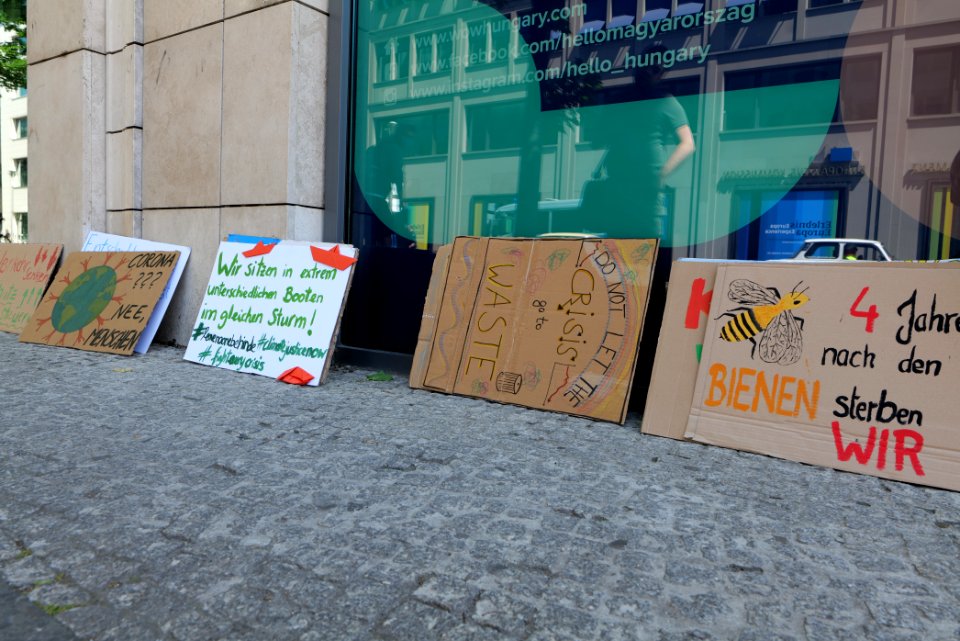 www.wowhungary.com
www.facebook.com/hellomagyarország
www.instagram.com/hello_hungary
CORONA
???
NEE,
MENSCHEN
Wir sitzen in extrem
unterschiedlichen Booten
im gleichen Sturm!
#leavenoonebehind #climatejusticenow
#fighteverycrisis
DO NOT LET THE
CRISIS
go to
WASTE
K
4 Jahre
nach den
BIENEN
sterben
WIR
Erlebnis
Europa
Experience